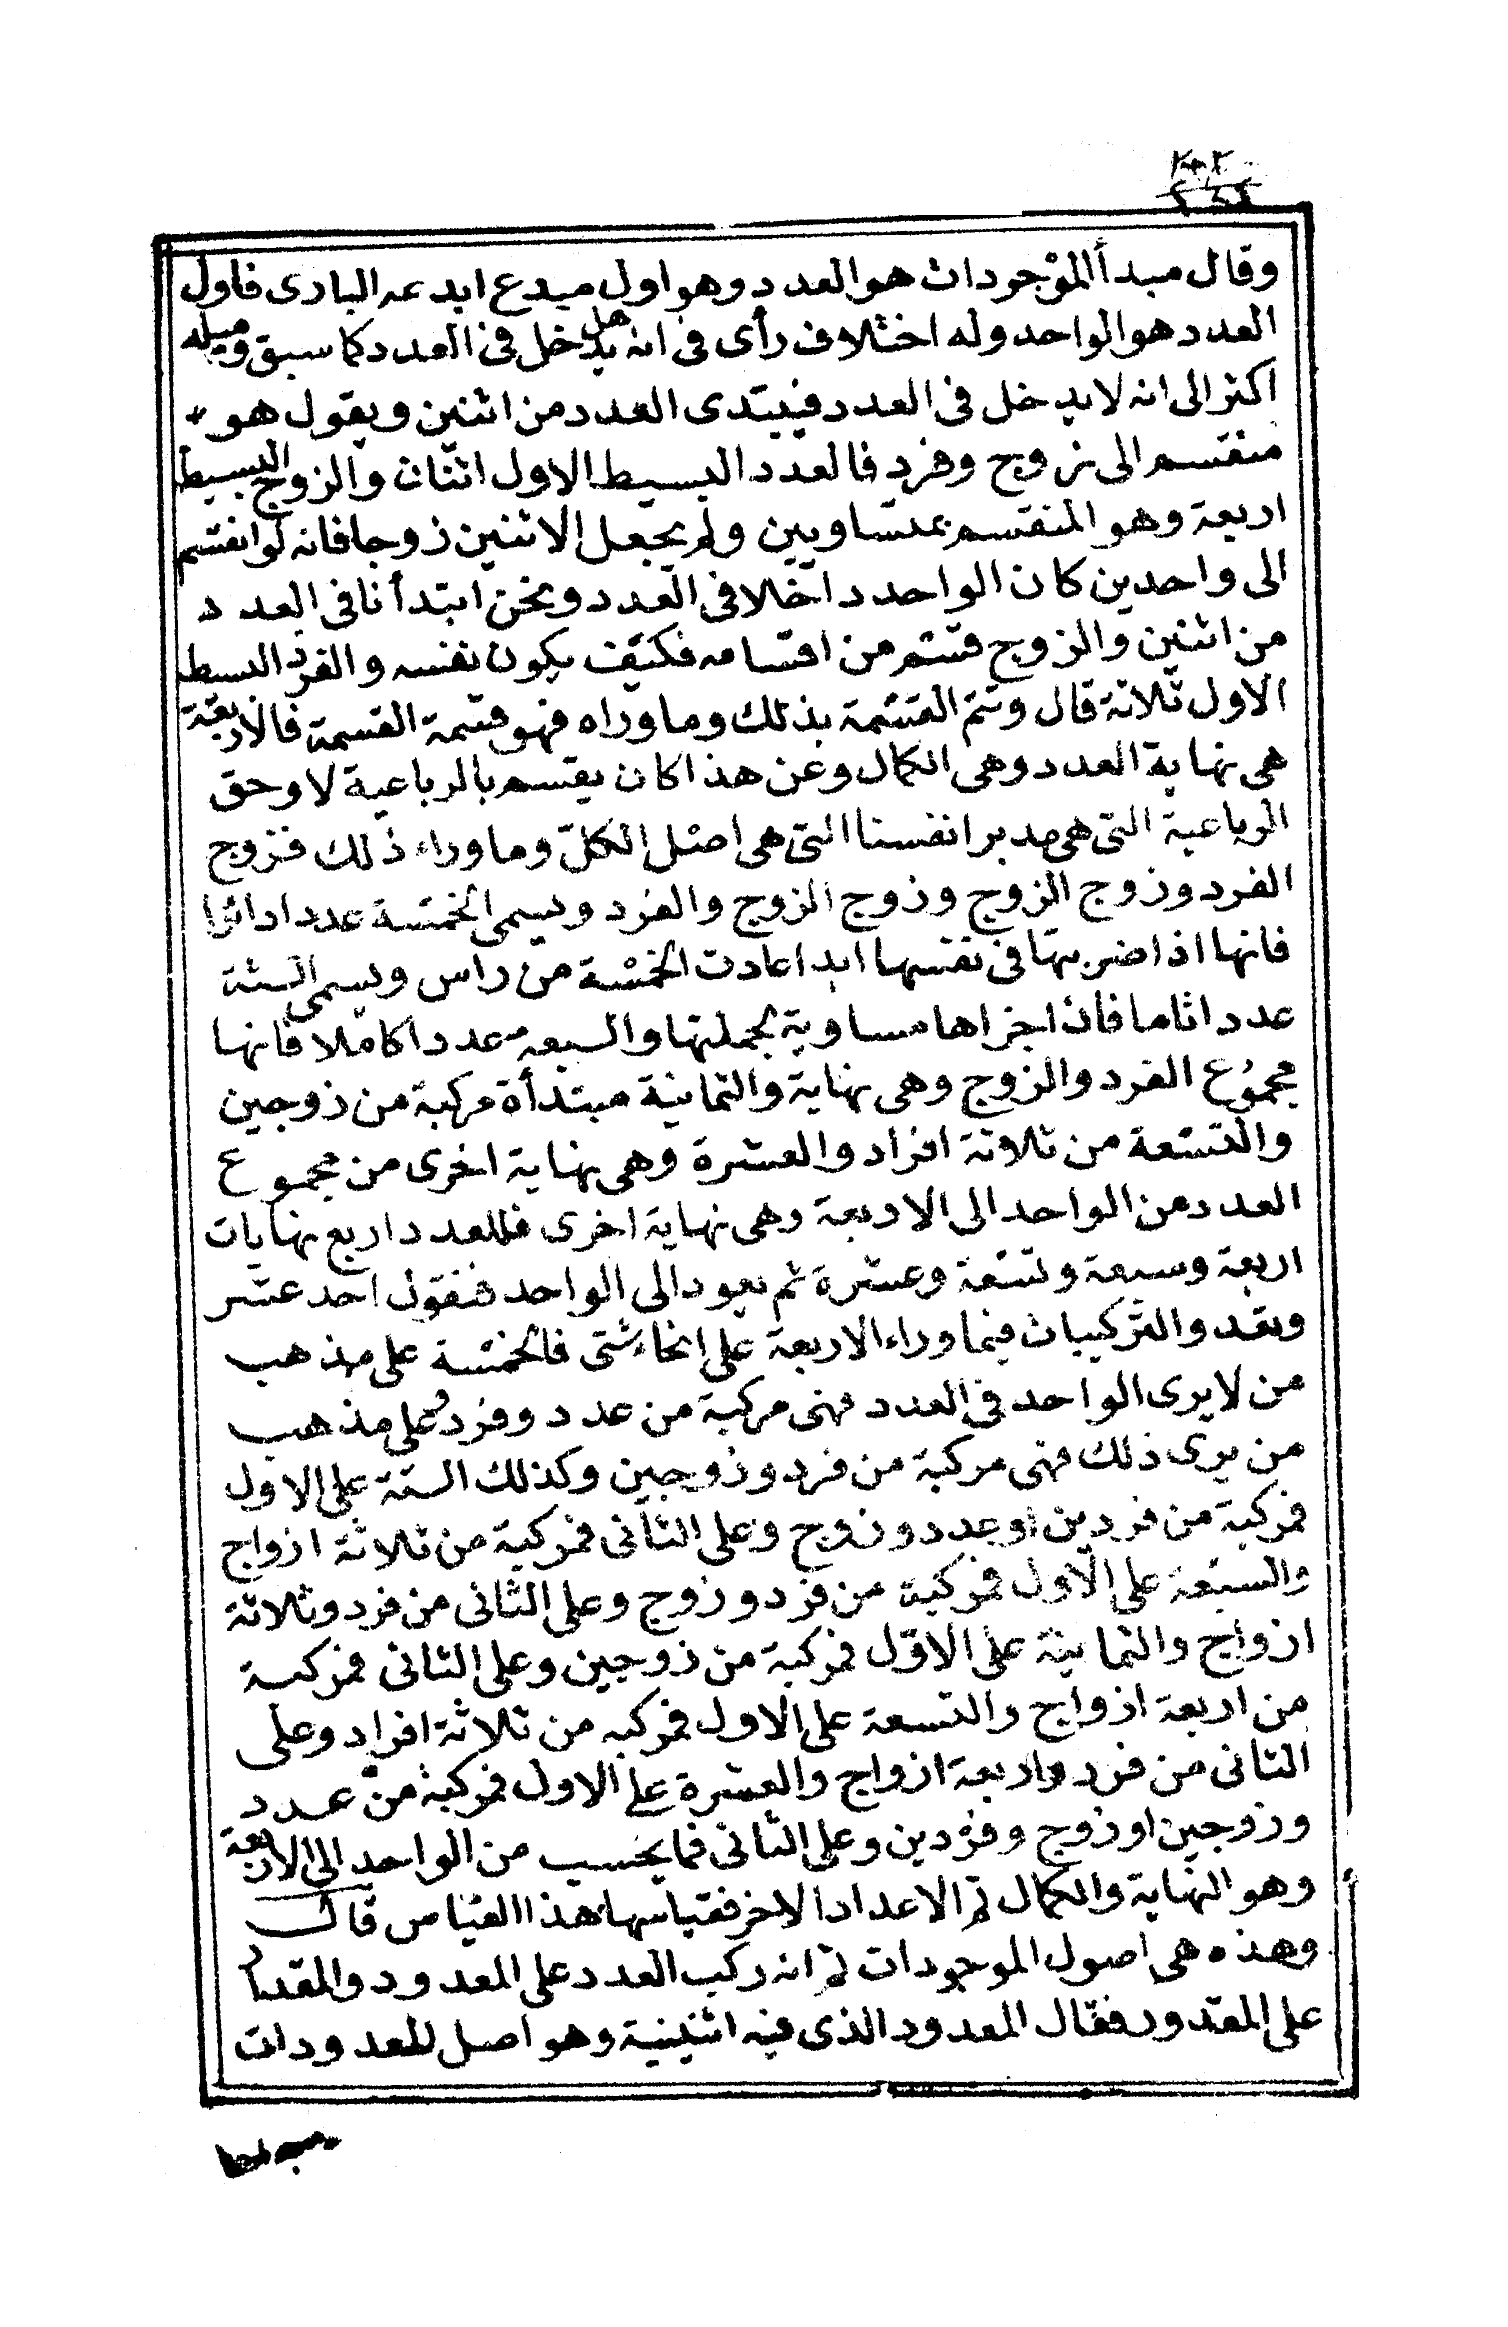 وقال مبدأ الموجودات هو العدد وهو اول مبدع ابدعه البارى فاول
العدد هو الواحد وله اختلاف رأى فى انه هل يدخل فى العدد كما سبق وميله
اكثر الى انه لا يدخل فى العدد فيبتدى العدد من اثنين ويقول هو
منقسم الى زوج وفرد فالعدد البسيط الاول اثنان والزوج البسيط
اربعة وهو المنقسم بمتساويين ولم يجعل الاثنين زوجا فانه لو انقسم
الى واحدين كان الواحد داخلا فى العدد ونحن ابتدأنا فى العدد
من اثنين والزوج قسم من اقسامه فكيف يكون نفسه والفرد البسيط
الاول ثلاثة قال وتتم القسمة بذلك وما وراه فهو قسمة القسمة فالاربعة
هى نهاية العدد وهى الكمال وعن هذا كان يقسم بالرباعية لا وحق
الرباعية التى هى مدبر انفسنا التى هى اصل الكل وما وراء ذلك فزوج
الفرد وزوج الزوج وزوج الزوج والفرد ويسمى الخمسة عددا دائرا
فانها اذا ضربتها فى نفسها ابدا عادت الخمسة من راس ويسمى الستة
عددا تاما فان اجزاها مساوية لجملتها والسبعة عددا كاملا فانها
مجموع الفرد والزوج وهى نهاية والثمانية مبتدأة مركبة من زوجين
والتسعة من ثلاثة افراد والعشرة وهى نهاية اخرى من مجموع
العدد من الواحد الى الاربعة وهى نهاية اخرى فللعدد اربع نهايات
اربعة وسبعة وتسعة وعشرة ثم يعود الى الواحد فنقول احد عشر
ويعد والتركيبات فيما وراء الاربعة على انحاء شتى فالخمسة على مذهب
من لا يرى الواحد فى العدد فهى مركبة من عدد وفرد وعلى مذهب
من يرى ذلك فهى مركبة من فرد وزوجين وكذلك الستة على الاول
فمركبة من فردين او عدد وزوج وعلى الثانى فمركبة من ثلاثة ازواج
والسبعة على الاول فمركبة من فرد وزوج وعلى الثانى من فرد وثلاثة
ازواج والثمانية على الاول فمركبة من زوجين وعلى الثانى فمركبة
من اربعة ازواج والتسعة على الاول فمركبه من ثلاثة افراد وعلى
الثانى من فرد واربعة ازواج والعشرة على الاول فمركبة من عدد
وزوجين او زوج وفردين وعلى الثانى فما يحسب من الواحد الى الاربعة
وهو النهاية والكمال ثم الاعداد الاخر فقياسها هذا القياس قال
وهذه هى اصول الموجودات ثم انه ركب العدد على المعدود والمقدار
على المقدور فقال المعدود الذى فيه اثنينية وهو اصل للمعدودات